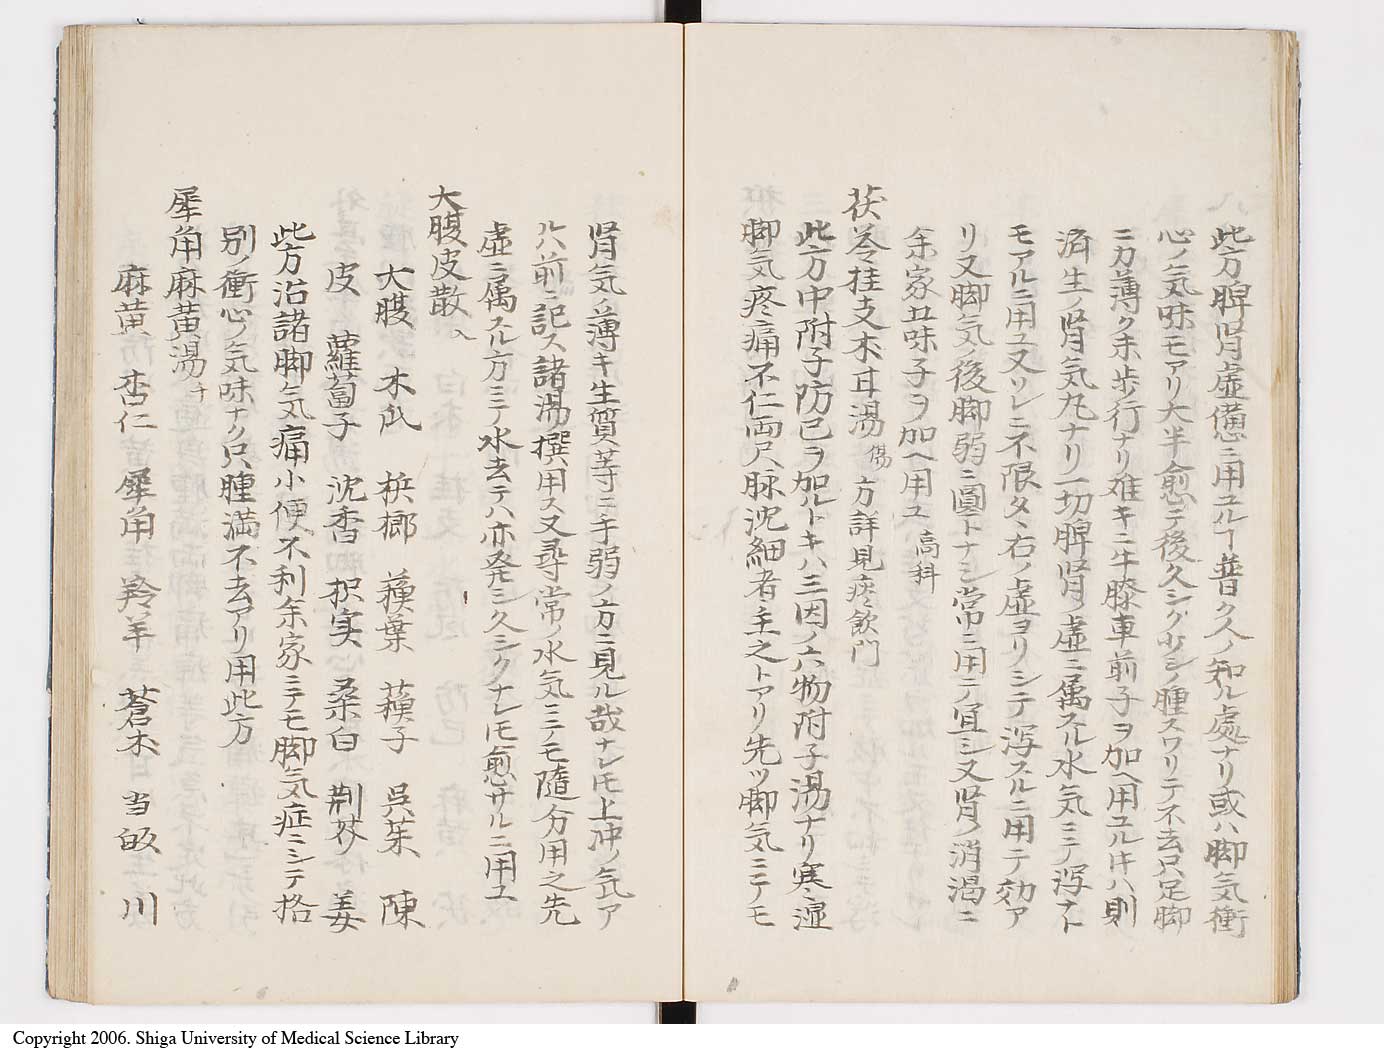 此方脾肾虚憊ニ用ユルヿ普ク人ノ知ル處ナリ或ハ脚気衝
心ノ気味モアリ大半愈テ後久シク少シノ腫スワリテ不去只足脚
ニ力薄ク未歩行ナリ难キニ牛膝車前子ヲ加ヘ用ユル片ハ則
済生ノ肾気丸ナリ一切脾肾ノ虚ニ属スル水気ミテ瀉ナト
モアルニ用ユ又ソレニ不限タヽ右ノ虚ヨリシテ瀉スルニ用テ効ア
リ又脚気ノ後脚弱ニ圓トナシ常ニ用テ宜シ又肾ノ消渇ニ
余家五味子ヲ加ヘ用ユ 高科
茯苓桂支术耳湯 傷 方詳見痰飲門
此方中附子防已ヲ加ルトキハ三因ノ六物附子湯ナリ寒湿
脚気疼痛不仁両尺脉沈細者主之トアリ先ツ脚気ミテモ
肾気ノ薄キ生質等ニ手弱ノ方ニ見ル哉ナレ𪜈上冲ノ気ア
ハ前ニ記ス諸湯撰用ス又尋常ノ水気ミテモ隨分用之先
虚ニ属スル方ミテ水去テハ亦発シ久シクナレ𪜈愈サルニ用ユ
大腹皮散 入
大腹 木瓜 梹榔 蘓葉 蘓子 呉茱 陳
皮 蘿蔔子 沈香 枳実 桑白 荆芥 姜
此方治諸脚気痛小便不利余家ミテモ脚気症ミシテ格
別ノ衝心ノ気味ナク只腫満不去アリ用此方
犀角麻黄湯 チ
麻黄 防 杏仁 犀角 羚羊 蒼术 当皈 川
Copyright 2006. Shiga University of Medical Science Library